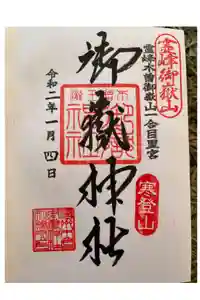 霊峰御嶽山
霊峰木曽御嶽山一合目里宮
御嶽神社
寒登山
令和二年一月四日